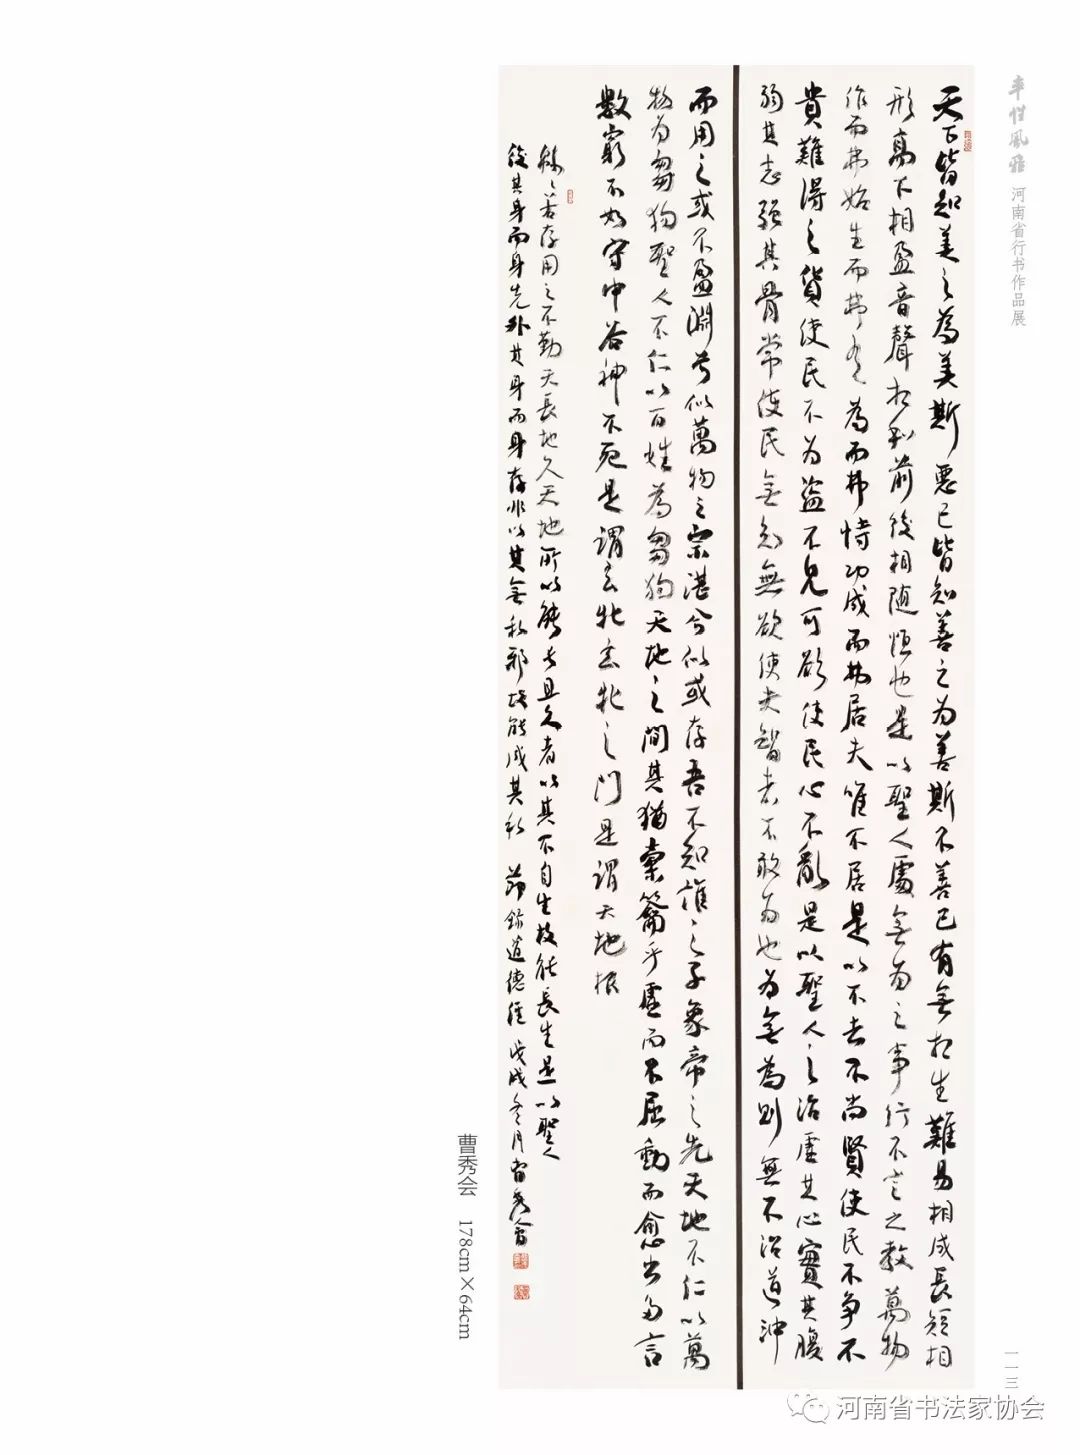 率性風雅 河南省行书作品展
天下皆知美之為美斯惡已皆知善之为善斯不善已有無相生難易相成長短相
形高下相盈音聲相和前後相随恒也是以聖人處無为之事行不言之教萬物
作而弗始生而弗有為而弗恃功成而弗居夫唯不居是以不去不尚賢使民不争不
貴難得之貨使民不为盗不見可欲使民心不亂是以聖人之治虚其心實其腹
弱其志强其骨常使民無知無欲使夫智者不敢为也为無為則無不治道沖
而用之或不盈淵兮似萬物之宗湛兮似或存吾不知誰之子象帝之先天地不仁以萬
物为芻狗聖人不仁以百姓為芻狗天地之間其猶橐籥乎虚而不屈動而愈出多言
數窮不如守中谷神不死是謂玄牝玄牝之门是謂天地根
綿綿若存用之不勤天長地久天地所以能长且久者以其不自生故能長生是以聖人
後其身而身先外其身而身存非以其無私邪故能成其私 節錄道德經 戊戌冬月 曹秀會
曹秀会 178cm×64cm
一一三
河南省书法家协会